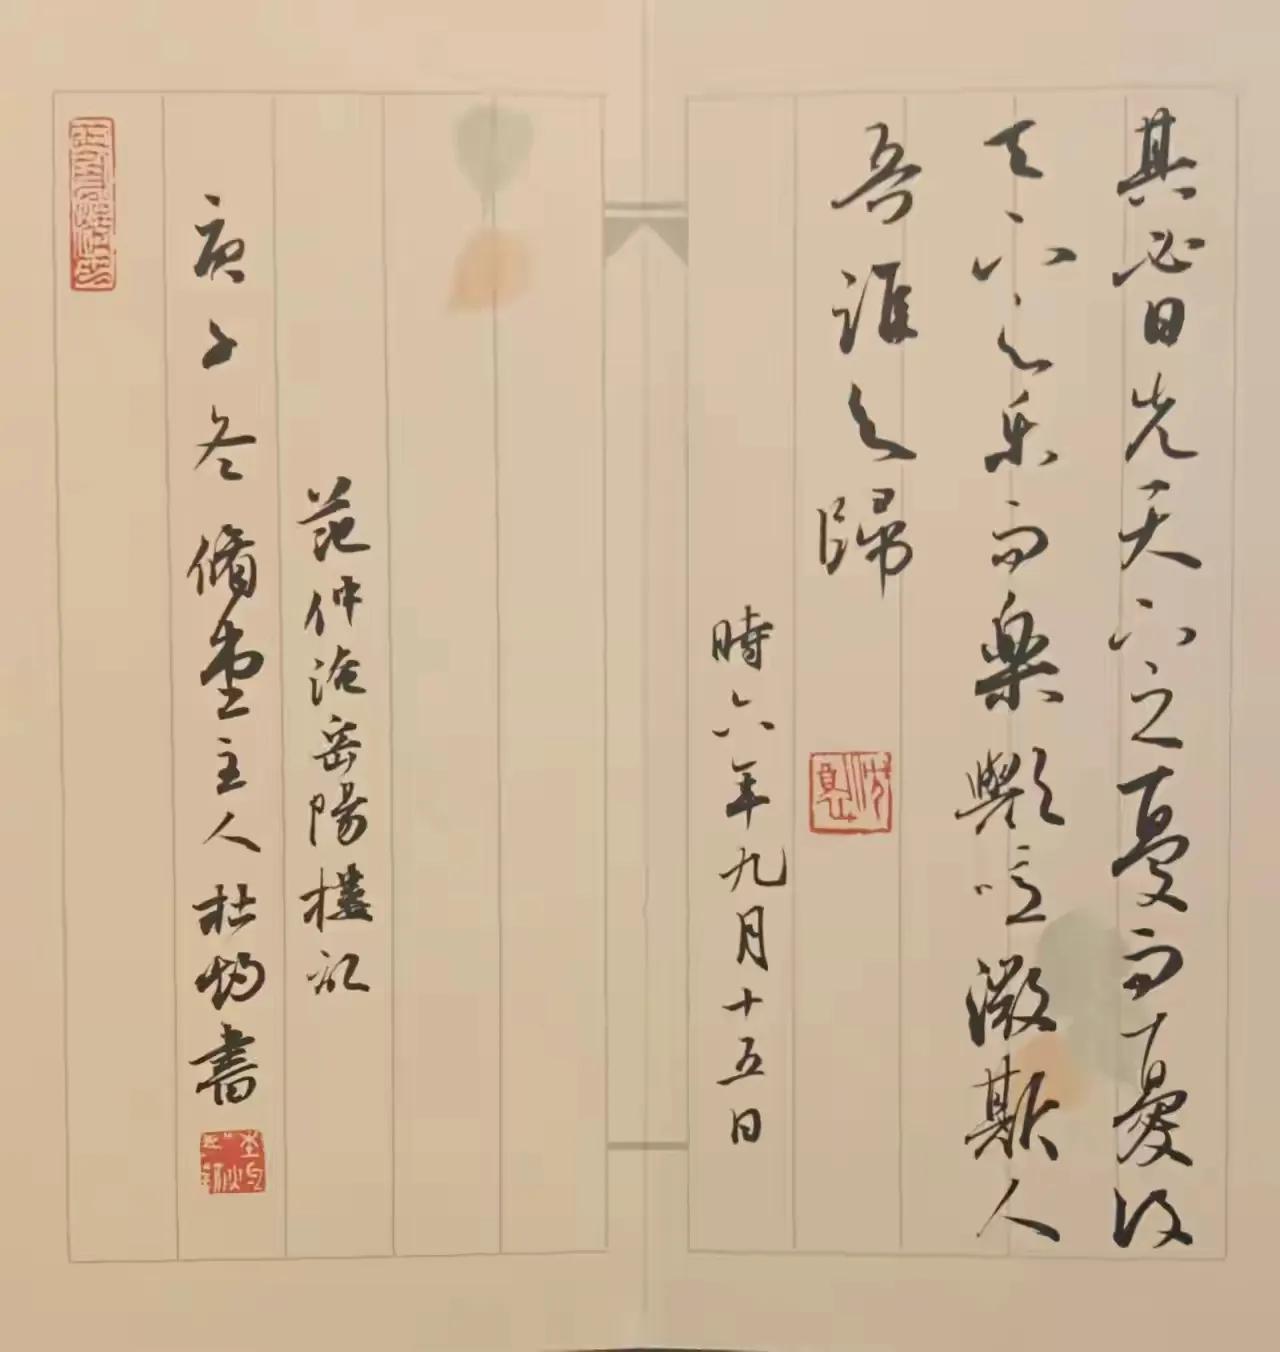 其必曰先天下之憂而憂後
天下之乐而樂歟噫微斯人
吾誰与歸
時六年九月十五日
范仲淹岳陽樓記
庚子冬脩堂主人杜書